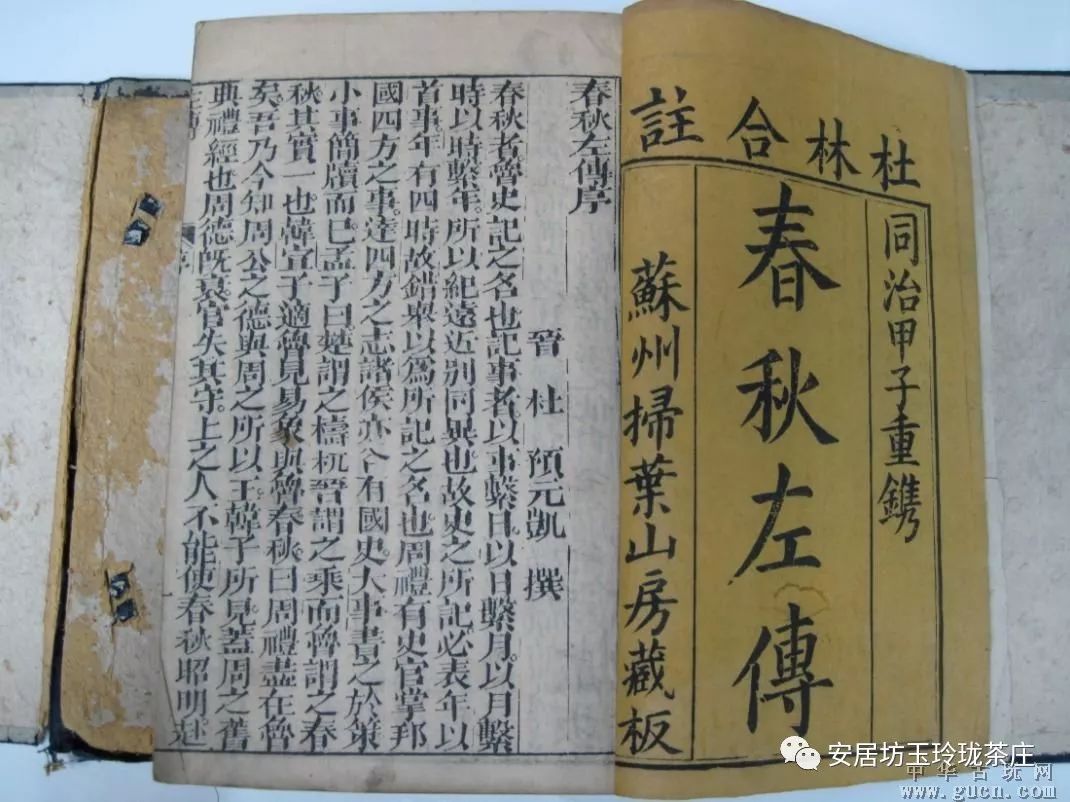 杜林合註
同治甲子重鐫
春秋左傳
蘇州掃葉山房藏板
春秋左傳序
晉 杜 預元凱 撰
春秋者魯史記之名也記事者以事繫日以日繫月以月繫
時以時繫年所以紀遠近別同異也故史之所記必表年以
首事年有四時故錯舉以爲所記之名也周禮有史官掌邦
國四方之事達四方之志諸侯亦各有國史大事書之於策
小事簡牘而已孟子曰楚謂之檮杌晉謂之乘而魯謂之春
秋其實一也韓宣子適魯見易象與魯春秋曰周禮盡在魯
矣吾乃今知周公之德與周之所以王韓子所見蓋周之舊
典禮經也周德旣衰官失其守上之人不能使春秋昭明赴
安居坊玉玲珑茶庄
中华古玩网
www.gucn.com